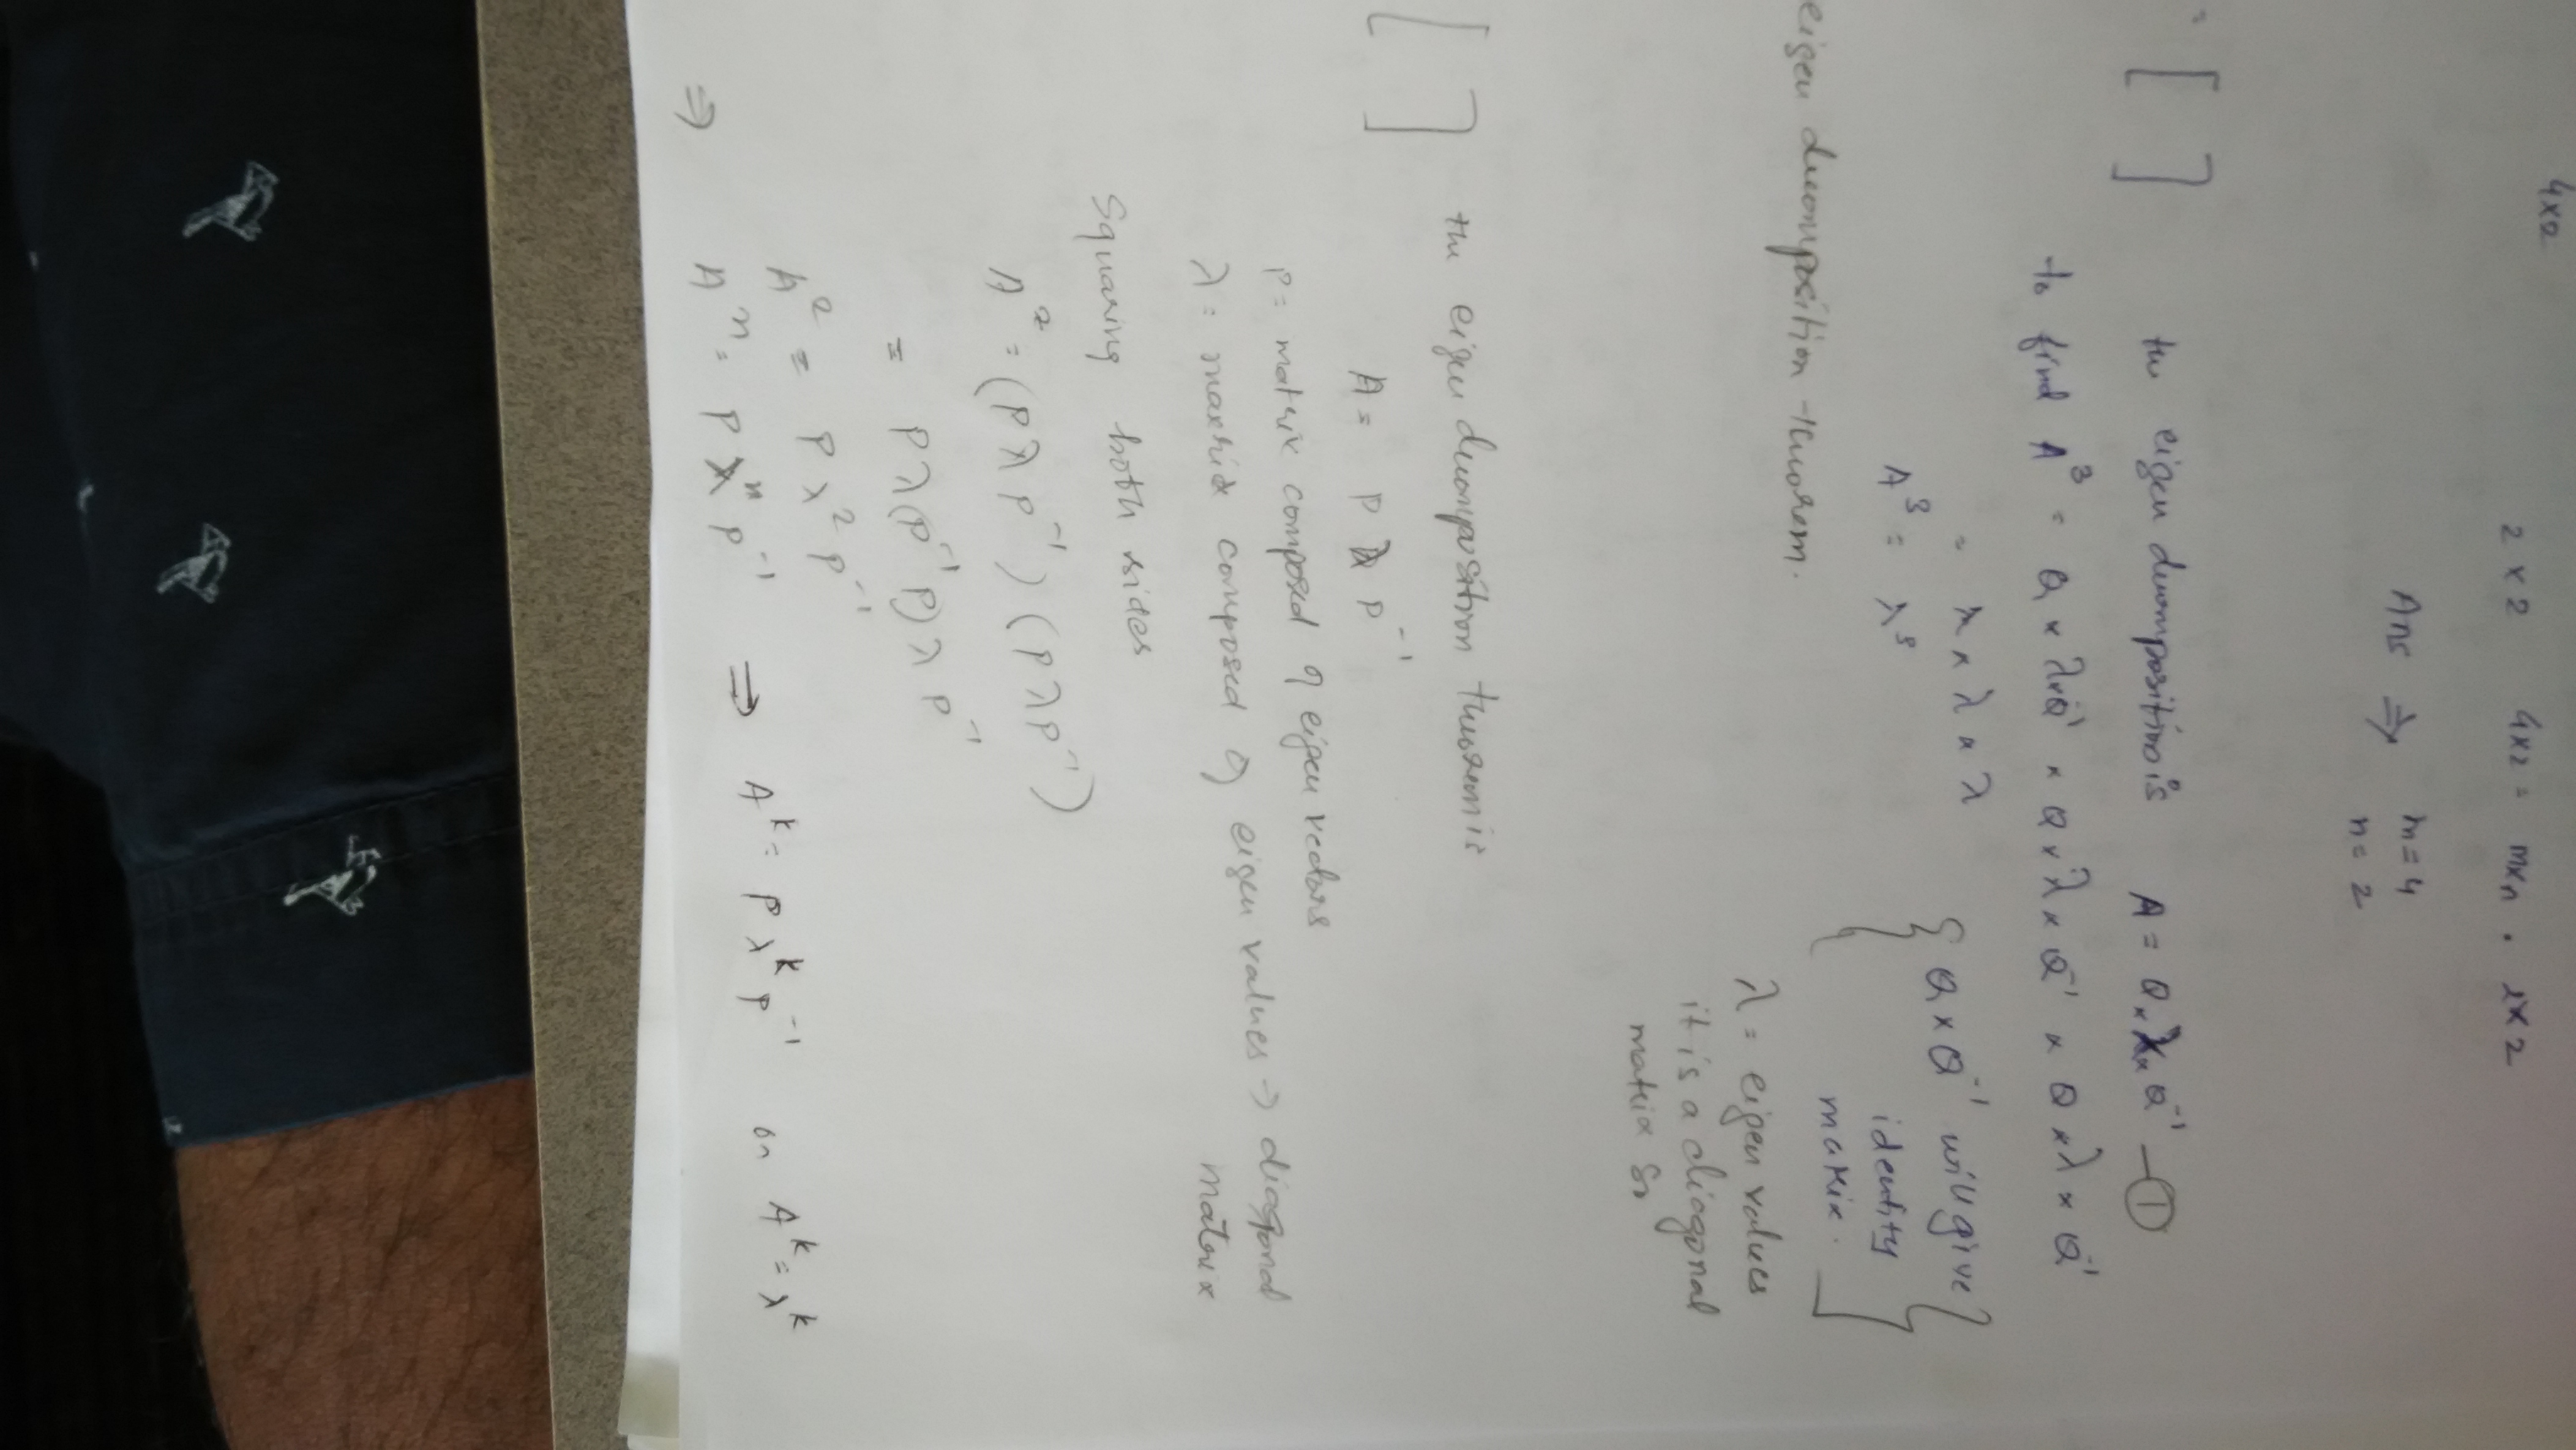 4x2
2 x 2 4x2 = mxn . 2x2
Ans ⇒ m=4
n= 2
= [ ] the eigen deomposition is A = Q x λ x Q⁻¹ —①
to find A³ = Q x λ x Q⁻¹ x Q x λ x Q⁻¹ x Q x λ x Q⁻¹
= λ x λ x λ { Q x Q⁻¹ will give }
A³ = λ³ { identity
matrix. ]
eigen deomposition theorem. λ = eigen values
it is a diagonal
matrix so
[ ] the eigen deomposition theorem is
A = P λ P⁻¹
P = matrix composed of eigen vectors
λ = maxrix composed of eigen values → diagonal
matrix
Squaring both sides
A² = (P λ P⁻¹) (P λ P⁻¹)
= P λ (P⁻¹ P) λ P⁻¹
A² = P λ² P⁻¹
⇒ Aⁿ = P λⁿ P⁻¹ ⇒ Aᵏ = P λᵏ P⁻¹ or Aᵏ = λᵏ